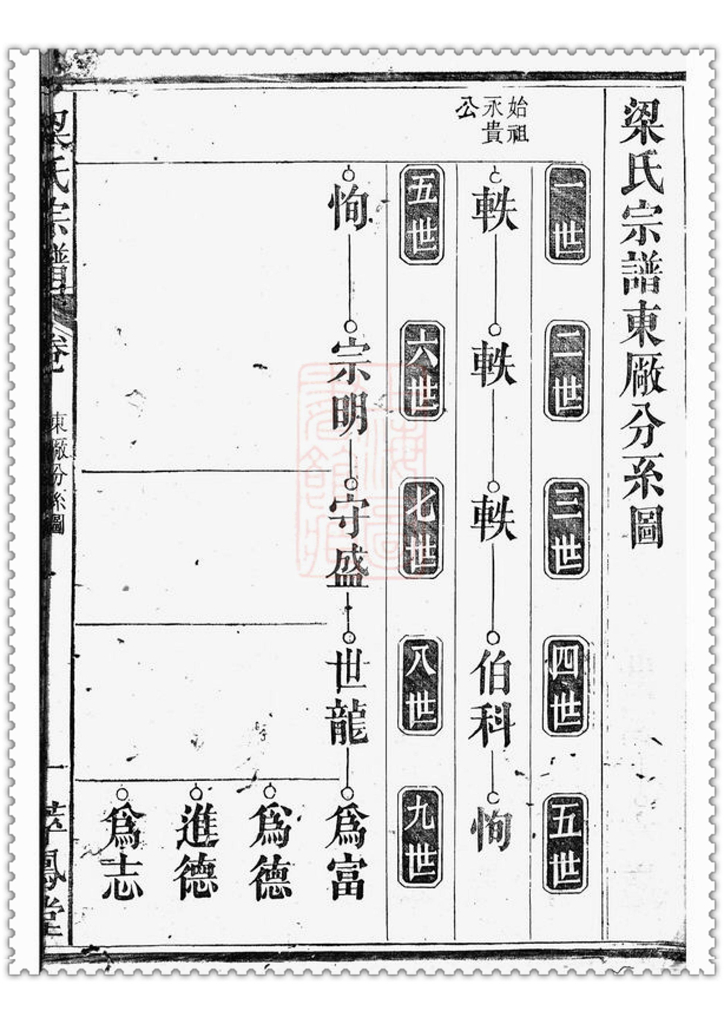 梁氏宗譜東厰分系圖
始祖
永貴
公
一世
二世
三世
四世
五世
軼
軼
軼
伯科
恂
五世
六世
七世
八世
九世
恂
宗明
守盛
世龍
爲富
爲德
進德
爲志
梁氏宗譜
卷
東厰分系圖
一
鳳堂